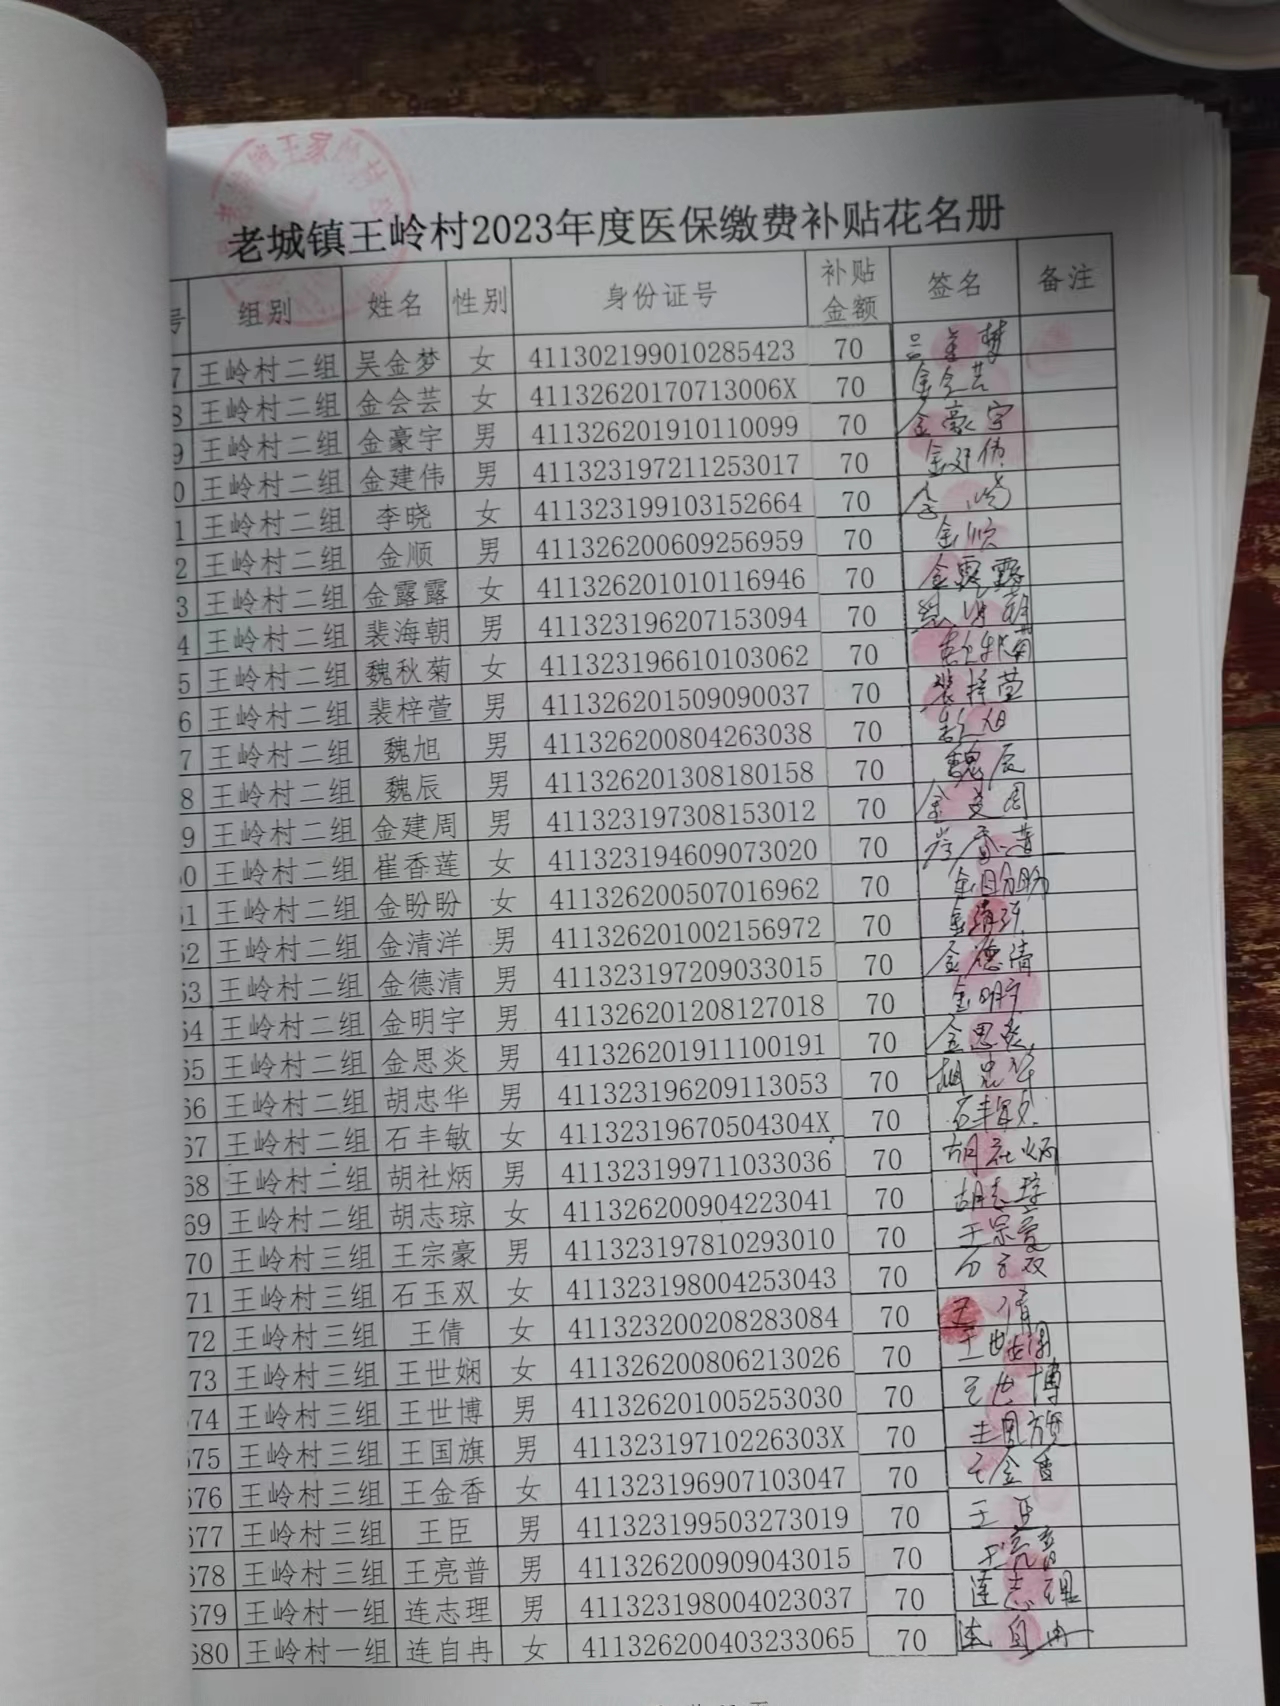 老城镇王岭村2023年度医保缴费补贴花名册
号 组别 姓名 性别 身份证号 补贴金额 签名 备注
7 王岭村二组 吴金梦 女 411302199010285423 70 吴金梦
8 王岭村二组 金会芸 女 41132620170713006X 70 金会芸
9 王岭村二组 金豪宇 男 411326201910110099 70 金豪宇
0 王岭村二组 金建伟 男 411323197211253017 70 金建伟
1 王岭村二组 李晓 女 411323199103152664 70
2 王岭村二组 金顺 男 411326200609256959 70 金顺
3 王岭村二组 金露露 女 411326201010116946 70 金露露
4 王岭村二组 裴海朝 男 411323196207153094 70
5 王岭村二组 魏秋菊 女 411323196610103062 70
6 王岭村二组 裴梓萱 男 411326201509090037 70 裴梓萱
7 王岭村二组 魏旭 男 411326200804263038 70
8 王岭村二组 魏辰 男 411326201308180158 70 魏辰
9 王岭村二组 金建周 男 411323197308153012 70
60 王岭村二组 崔香莲 女 411323194609073020 70
61 王岭村二组 金盼盼 女 411326200507016962 70 金盼盼
62 王岭村二组 金清洋 男 411326201002156972 70 金清洋
63 王岭村二组 金德清 男 411323197209033015 70 金德清
64 王岭村二组 金明宇 男 411326201208127018 70 金明宇
65 王岭村二组 金思炎 男 411326201911100191 70 金思炎
66 王岭村二组 胡忠华 男 411323196209113053 70 胡忠华
67 王岭村二组 石丰敏 女 41132319670504304X 70 石丰敏
68 王岭村二组 胡社炳 男 411323199711033036 70 胡社炳
69 王岭村二组 胡志琼 女 411326200904223041 70 胡志琼
70 王岭村三组 王宗豪 男 411323197810293010 70
71 王岭村三组 石玉双 女 411323198004253043 70
72 王岭村三组 王倩 女 411323200208283084 70 王倩
73 王岭村三组 王世娴 女 411326200806213026 70 王世娴
674 王岭村三组 王世博 男 411326201005253030 70 王世博
675 王岭村三组 王国旗 男 41132319710226303X 70 王国旗
676 王岭村三组 王金香 女 411323196907103047 70 王金香
677 王岭村三组 王臣 男 411323199503273019 70 王臣
678 王岭村三组 王亮普 男 411326200909043015 70 王亮普
679 王岭村一组 连志理 男 411323198004023037 70 连志理
680 王岭村一组 连自冉 女 411326200403233065 70 连自冉